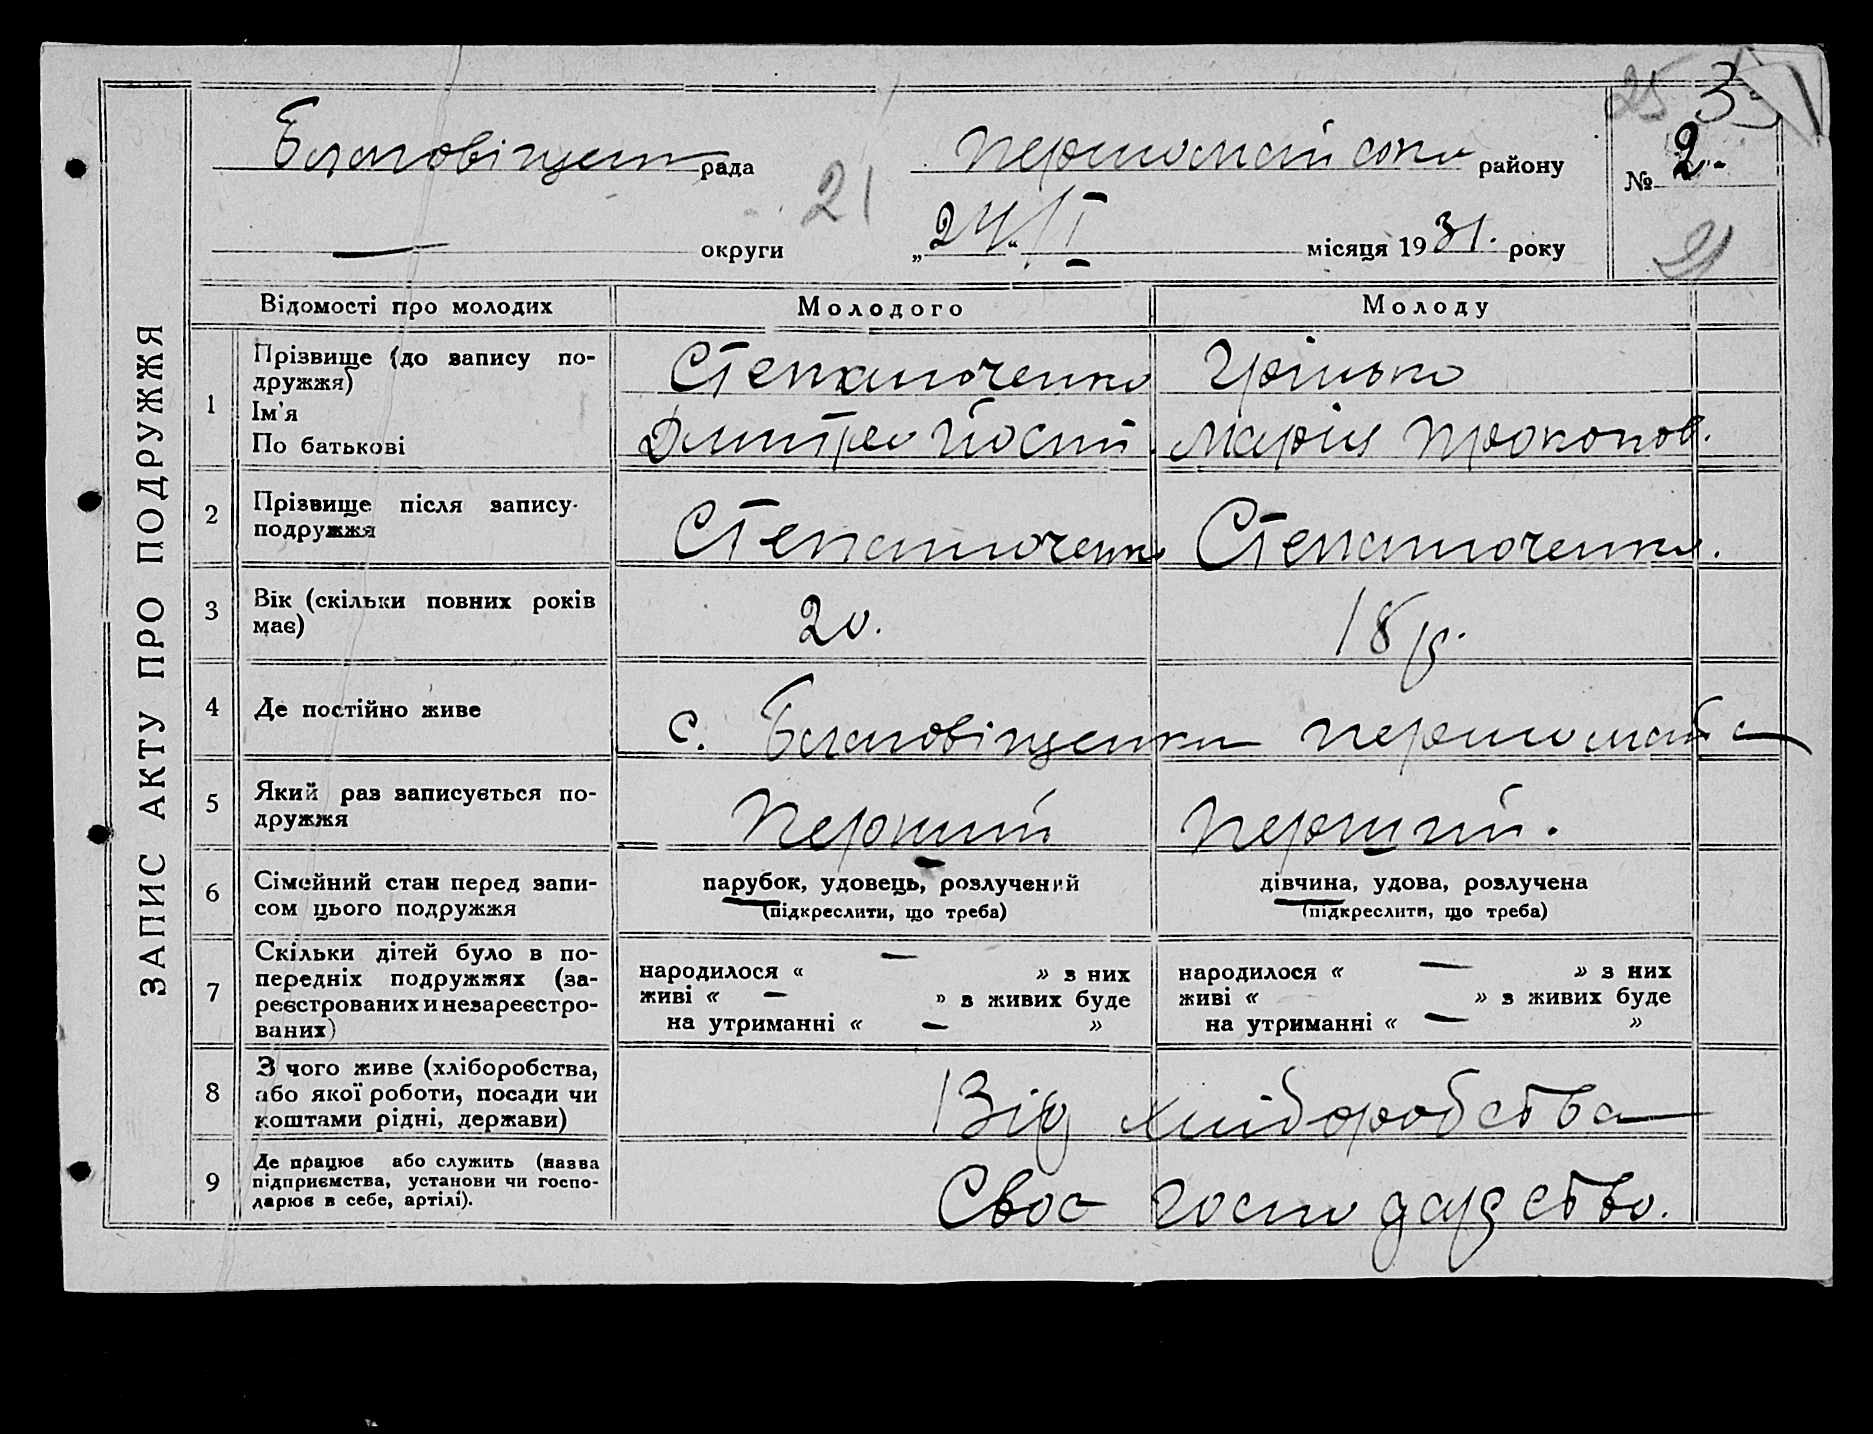 ЗАПИС АКТУ ПРО ПОДРУЖЖЯ
25 3
Благовіщен рада
Першомайсько району
№ 2.
21
— округи
„24“ I місяця 1931. року
21
Відомості про молодих
Молодого
Молоду
1
Прізвище (до запису по-
дружжя)
Ім'я
По батькові
Степанюченко
Дмитро Йосип.
Грінько
Марія Прокопов.
2
Прізвище після запису
подружжя
Степанюченко
Степанюченко.
3
Вік (скільки повних років
має)
20.
18 р.
4
Де постійно живе
с. Благовіщенка
5
Який раз записується по-
дружжя
Перший
Перший.
6
Сімейний стан перед запи-
сом цього подружжя
парубок, удовець, розлучений
(підкреслити, що треба)
дівчина, удова, розлучена
(підкреслити, що треба)
7
Скільки дітей було в по-
передніх подружжях (за-
реєстрованих и незареєстро-
ваних)
народилося « — » з них
живі « — » з живих буде
на утриманні « — »
народилося « — » з них
живі « » з живих буде
на утриманні « — »
8
З чого живе (хліборобства,
або якої роботи, посади чи
коштами рідні, держави)
Від хліборобства
9
Де працює або служить (назва
підприємства, установи чи госпо-
дарює в себе, артілі).
Своє господарство.